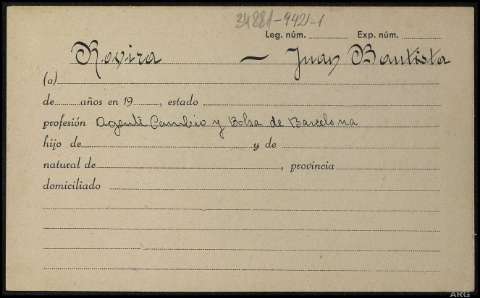 24281-9921-1
Leg. núm. Exp. núm.
Rovira — Juan Bautista
(a)
de años en 19 , estado
profesión Agente Cambio y Bolsa de Barcelona
hijo de y de
natural de , provincia
domiciliado
ARG